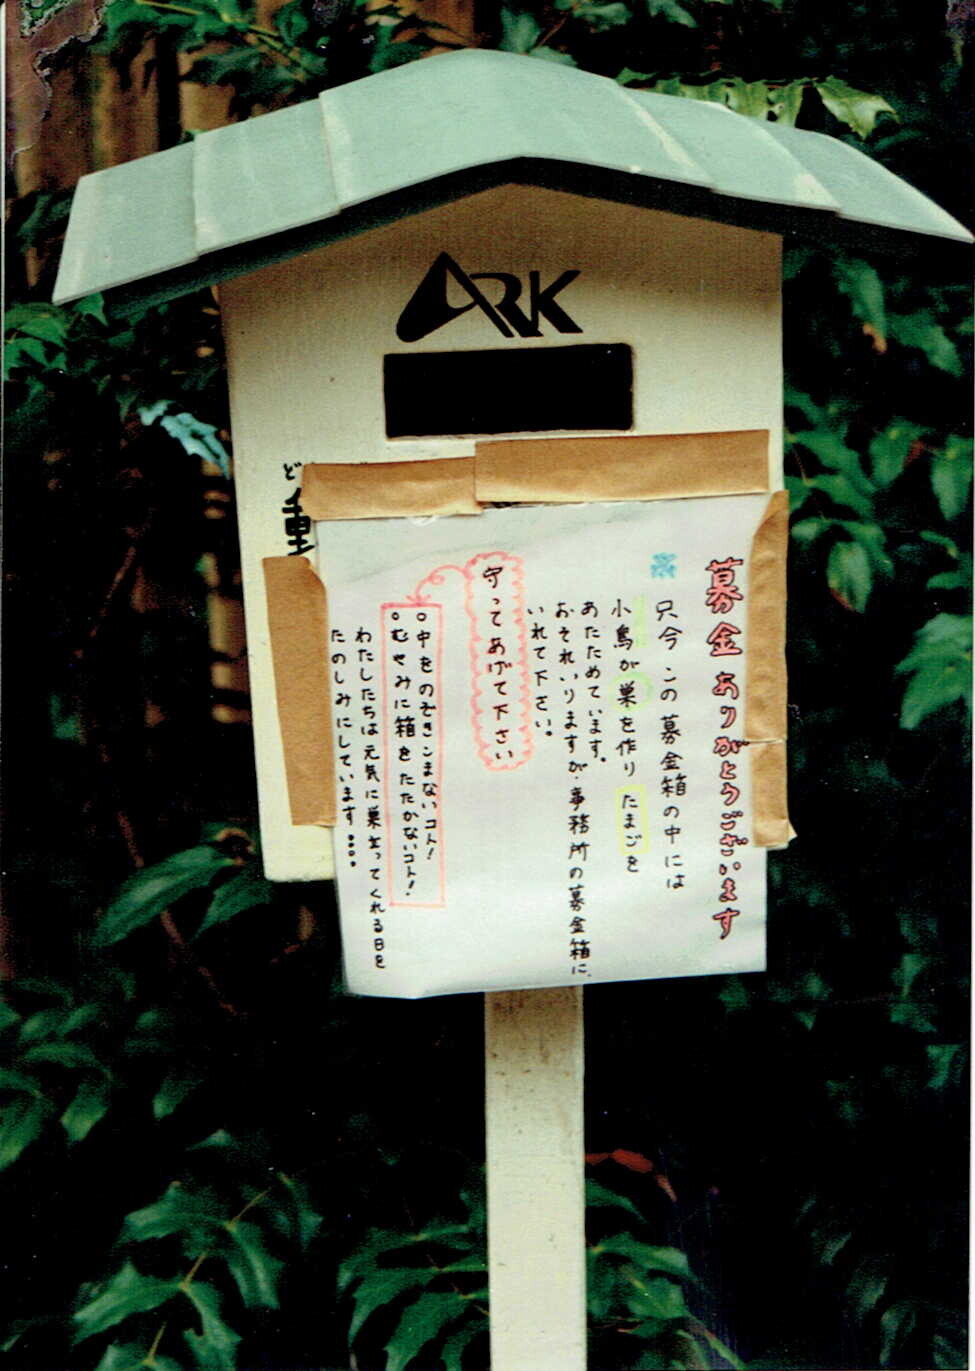 ARK
ど
動
募金ありがとうございます
只今この募金箱の中には
小鳥が巣を作りたまごを
あたためています。
おそれいりますが、事務所の募金箱に、
いれて下さい。
守ってあげて下さい
○中をのぞきこまないコト!
○むやみに箱をたたかないコト!
わたしたちは元気に巣立ってくれる日を
たのしみにしています....